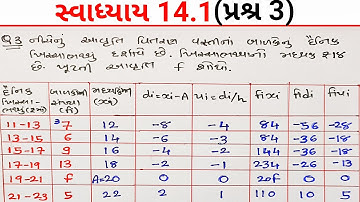 સ્વાધ્યાય 14.1(પ્રશ્ન 3)
Q3 નીચેનું આવૃત્તિ વિતરણ વસ્તીનાં બાળકોનું દૈનિક
ખિસ્સાભથ્થું દર્શાવે છે. ખિસ્સાભથ્થાનો મધ્યક ₹18
છે. ખૂટતી આવૃત્તિ f શોધો.
દૈનિક ખિસ્સા-ભથ્થું(₹માં) બાળકોની સંખ્યા (fi) મધ્યકિંમત (xi) di=xi-A ui=di/h fixi fidi fiui
11-13 7 12 -8 -4 84 -56 -28
13-15 6 14 -6 -3 84 -36 -18
15-17 9 16 -4 -2 144 -36 -18
17-19 13 18 -2 -1 234 -26 -13
19-21 f A=20 0 0 20f 0 0
21-23 5 22 2 1 110 10 5